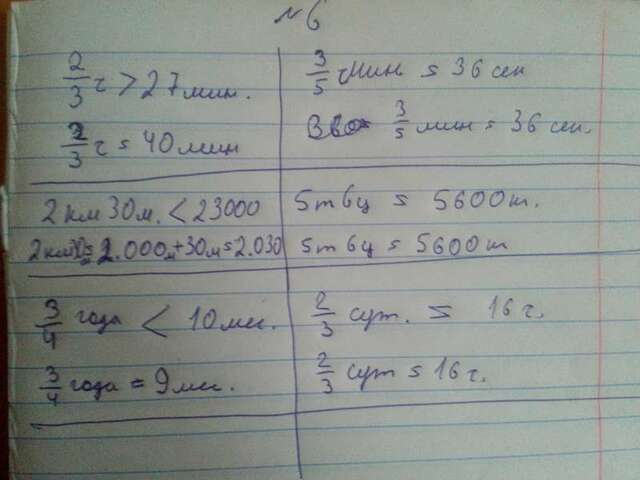 №6
2/3 ч > 27 мин.
2/3 ч = 40 мин
3/5 мин = 36 сек
3/5 мин = 36 сек.
2 км 30 м. < 23000
2.000м + 30м = 2.030
5т 6ц = 5600т.
5т 6ц = 5600т
3/4 года < 10 мес.
3/4 года = 9 мес.
2/3 сут. = 16 ч.
2/3 сут = 16 ч.